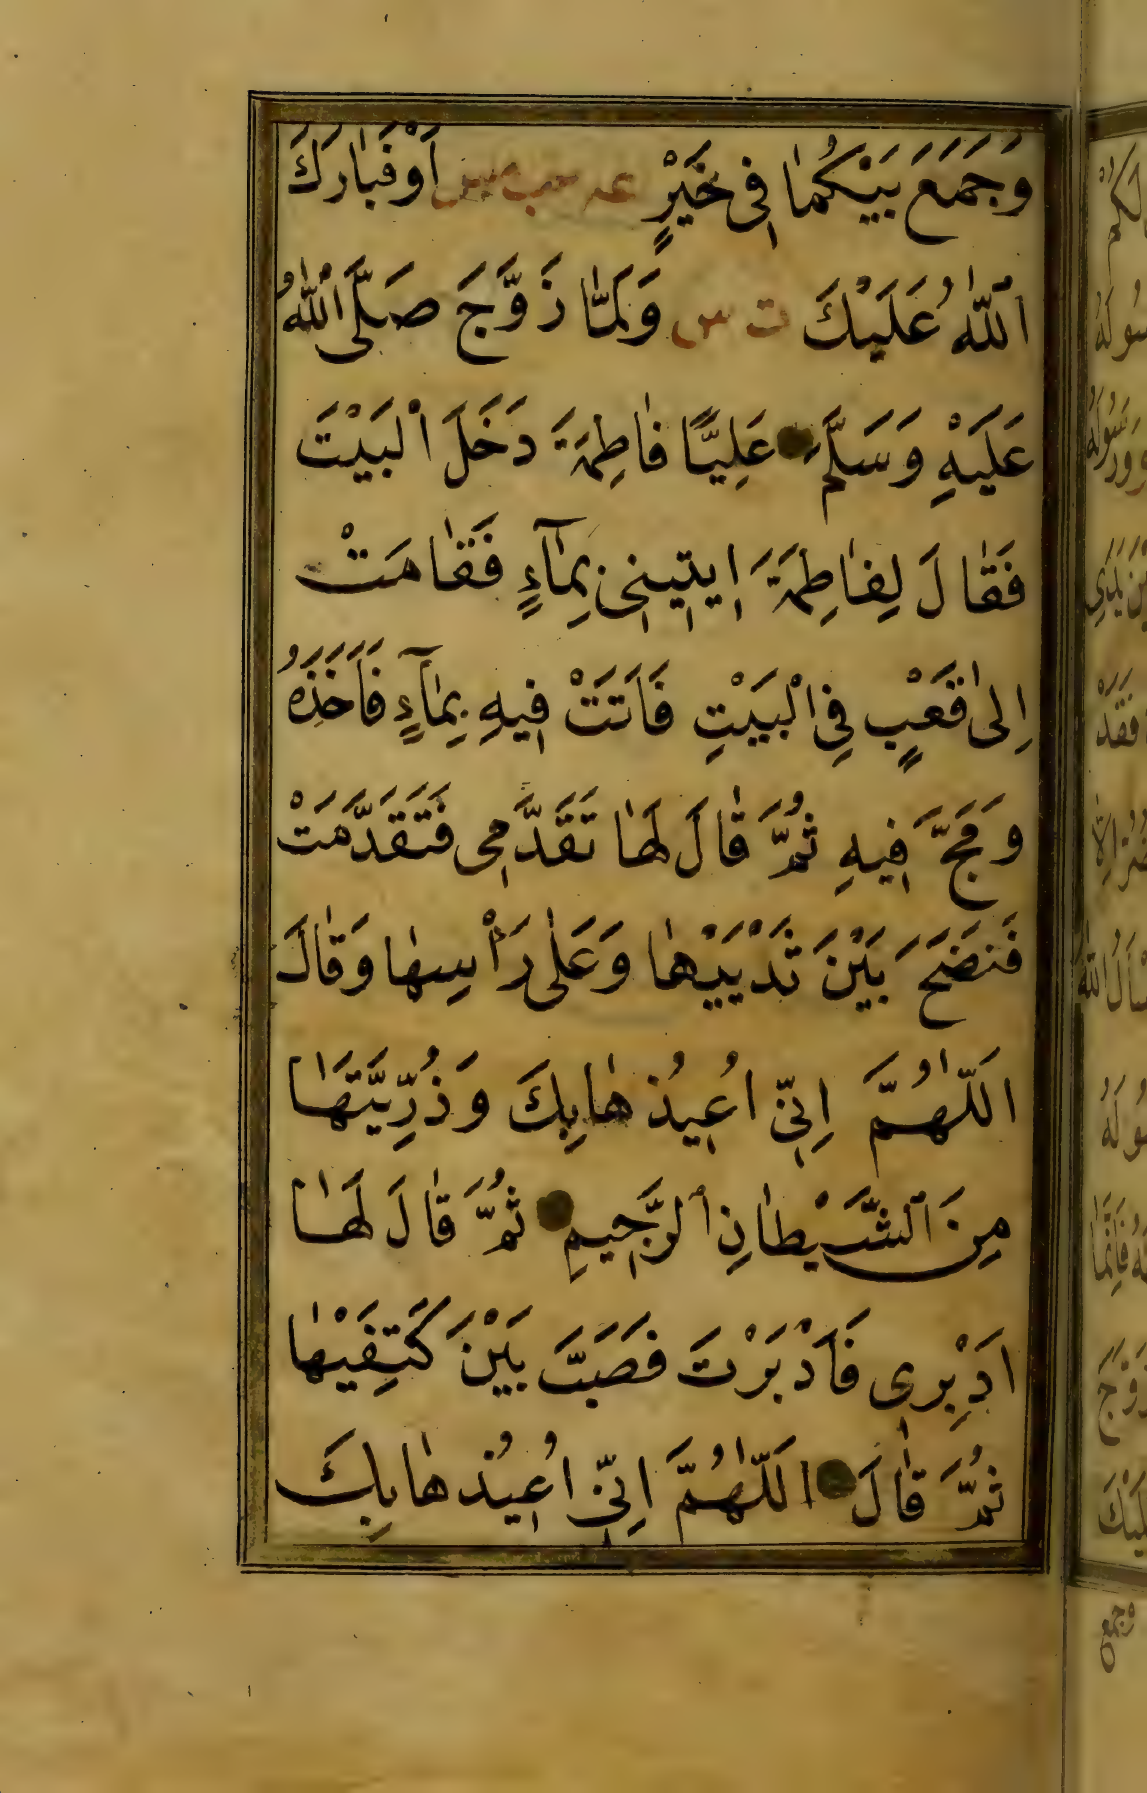 وَجَمَعَ بَيْنَكُمٰا فِى خَيْرٍ عه حب مس اَوْ فَبٰارَكَ
اللّٰهُ عَلَيْكَ ت س وَلَمّٰا زَوَّجَ صَلَّى اللّٰهُ
عَلَيْهِ وَسَلَّمَ عَلِيًّا فٰاطِمَةَ دَخَلَ الْبَيْتَ
فَقٰالَ لِفٰاطِمَةَ اِيتِينِى بِمٰآءٍ فَقٰامَتْ
اِلىٰ قَعْبٍ فِى الْبَيْتِ فَاَتَتْ فِيهِ بِمٰآءٍ فَاَخَذَهُ
وَمَجَّ فِيهِ ثُمَّ قٰالَ لَهٰا تَقَدَّمِى فَتَقَدَّمَتْ
فَنَضَحَ بَيْنَ ثَدْيَيْهٰا وَعَلىٰ رَأْسِهٰا وَقٰالَ
اَللّٰهُمَّ اِنِّى اُعِيذُهٰا بِكَ وَذُرِّيَّتَهٰا
مِنَ الشَّيْطٰانِ الرَّجِيمِ ثُمَّ قٰالَ لَهٰا
اَدْبِرِى فَاَدْبَرْتَ فَصَبَّ بَيْنَ كَتِفَيْهٰا
ثُمَّ قٰالَ اَللّٰهُمَّ اِنِّى اُعِيذُهٰا بِكَ